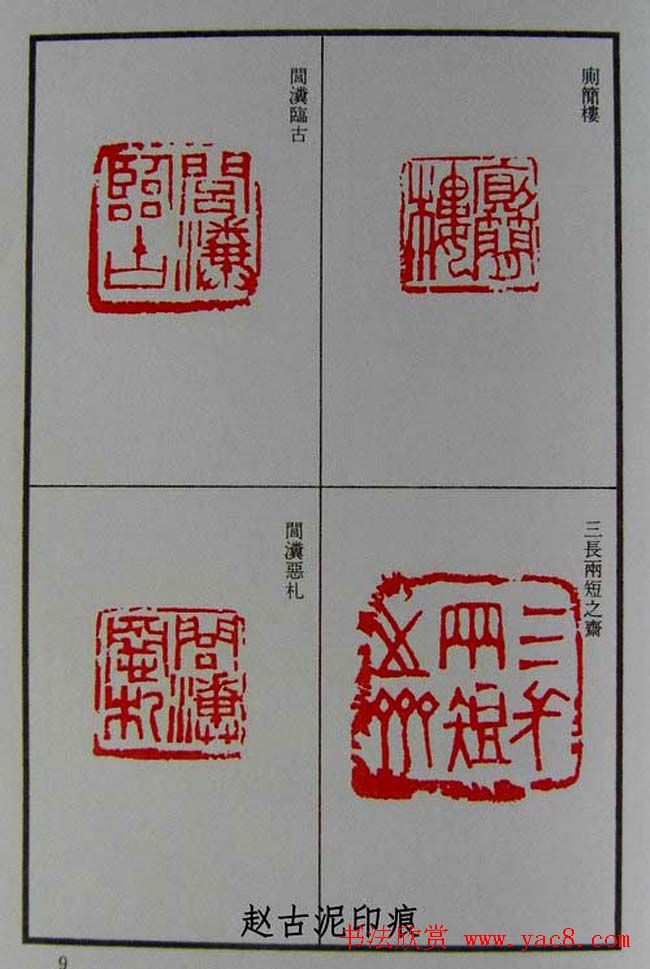 廁簡樓
閭瀵臨古
三長兩短之齋
閭瀵惡札
赵古泥印痕
书法欣赏 www.yac8.com
9